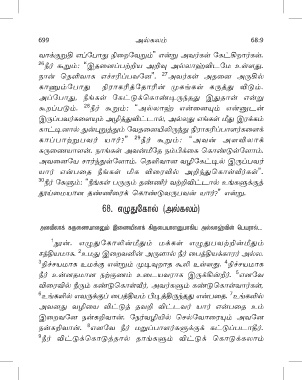 699 அல்கலம் 68:9
வாக்குறுதி எப்போது நிறைவேறும்" என்று அவர்கள் கேட்கிறார்கள்.
26நீர் கூறும்: "இதனைப்பற்றிய அறிவு அல்லாஹ்விடமே உள்ளது.
நான் தெளிவாக எச்சரிப்பவனே". 27அவர்கள் அதனை அருகில்
காணும்போது நிராகரித்தோரின் முகங்கள் கருத்து விடும்.
அப்போது, நீங்கள் கேட்டுக்கொண்டிருந்தது இதுதான் என்று
கூறப்படும். 28நீர் கூறும்: "அல்லாஹ் என்னையும் என்னுடன்
இருப்பவர்களையும் அழித்துவிட்டால், அல்லது எங்கள் மீது இரக்கம்
காட்டினால் துன்புறுத்தும் வேதனையிலிருந்து நிராகரிப்பாளர்களைக்
காப்பாற்றுபவர் யார்?" 29நீர் கூறும்: "அவன் அளவிலாக்
கருணையாளன். நாங்கள் அவன்மீதே நம்பிக்கை கொண்டுள்ளோம்.
அவனையே சார்ந்துள்ளோம். தெளிவான வழிகேட்டில் இருப்பவர்
யார் என்பதை நீங்கள் மிக விரைவில் அறிந்துகொள்வீர்கள்".
30நீர் கேளும்: "நீங்கள் பருகும் தண்ணீர் வற்றிவிட்டால் உங்களுக்குத்
தூய்மையான தண்ணீரைக் கொண்டுவருபவன் யார்?" என்று.
68. எழுதுகோல் (அல்கலம்)
அளவிலாக் கருணையாளனும் இணையிலாக் கிருபையாளனுமாகிய அல்லாஹ்வின் பெயரால்...
1நூன். எழுதுகோலின்மீதும் மக்கள் எழுதுபவற்றின்மீதும்
சத்தியமாக. 2உமது இறைவனின் அருளால் நீர் பைத்தியக்காரர் அல்லர்.
3நிச்சயமாக உமக்கு என்றும் முடிவுறாத கூலி உள்ளது. 4நிச்சயமாக
நீர் உன்னதமான நற்குணம் உடையவராக இருக்கின்றீர். 5எனவே
விரைவில் நீரும் கண்டுகொள்வீர், அவர்களும் கண்டுகொள்வார்கள்,
6உங்களில் எவருக்குப் பைத்தியம் பிடித்திருந்தது என்பதை. 7உங்களில்
அவனது வழியை விட்டுத் தவறி விட்டவர் யார் என்பதை உம்
இறைவனே நன்கறிவான். நேர்வழியில் செல்வோரையும் அவனே
நன்கறிவான். 8எனவே நீர் மறுப்பாளர்களுக்குக் கட்டுப்படாதீர்.
9நீர் விட்டுக்கொடுத்தால் தாங்களும் விட்டுக் கொடுக்கலாம்